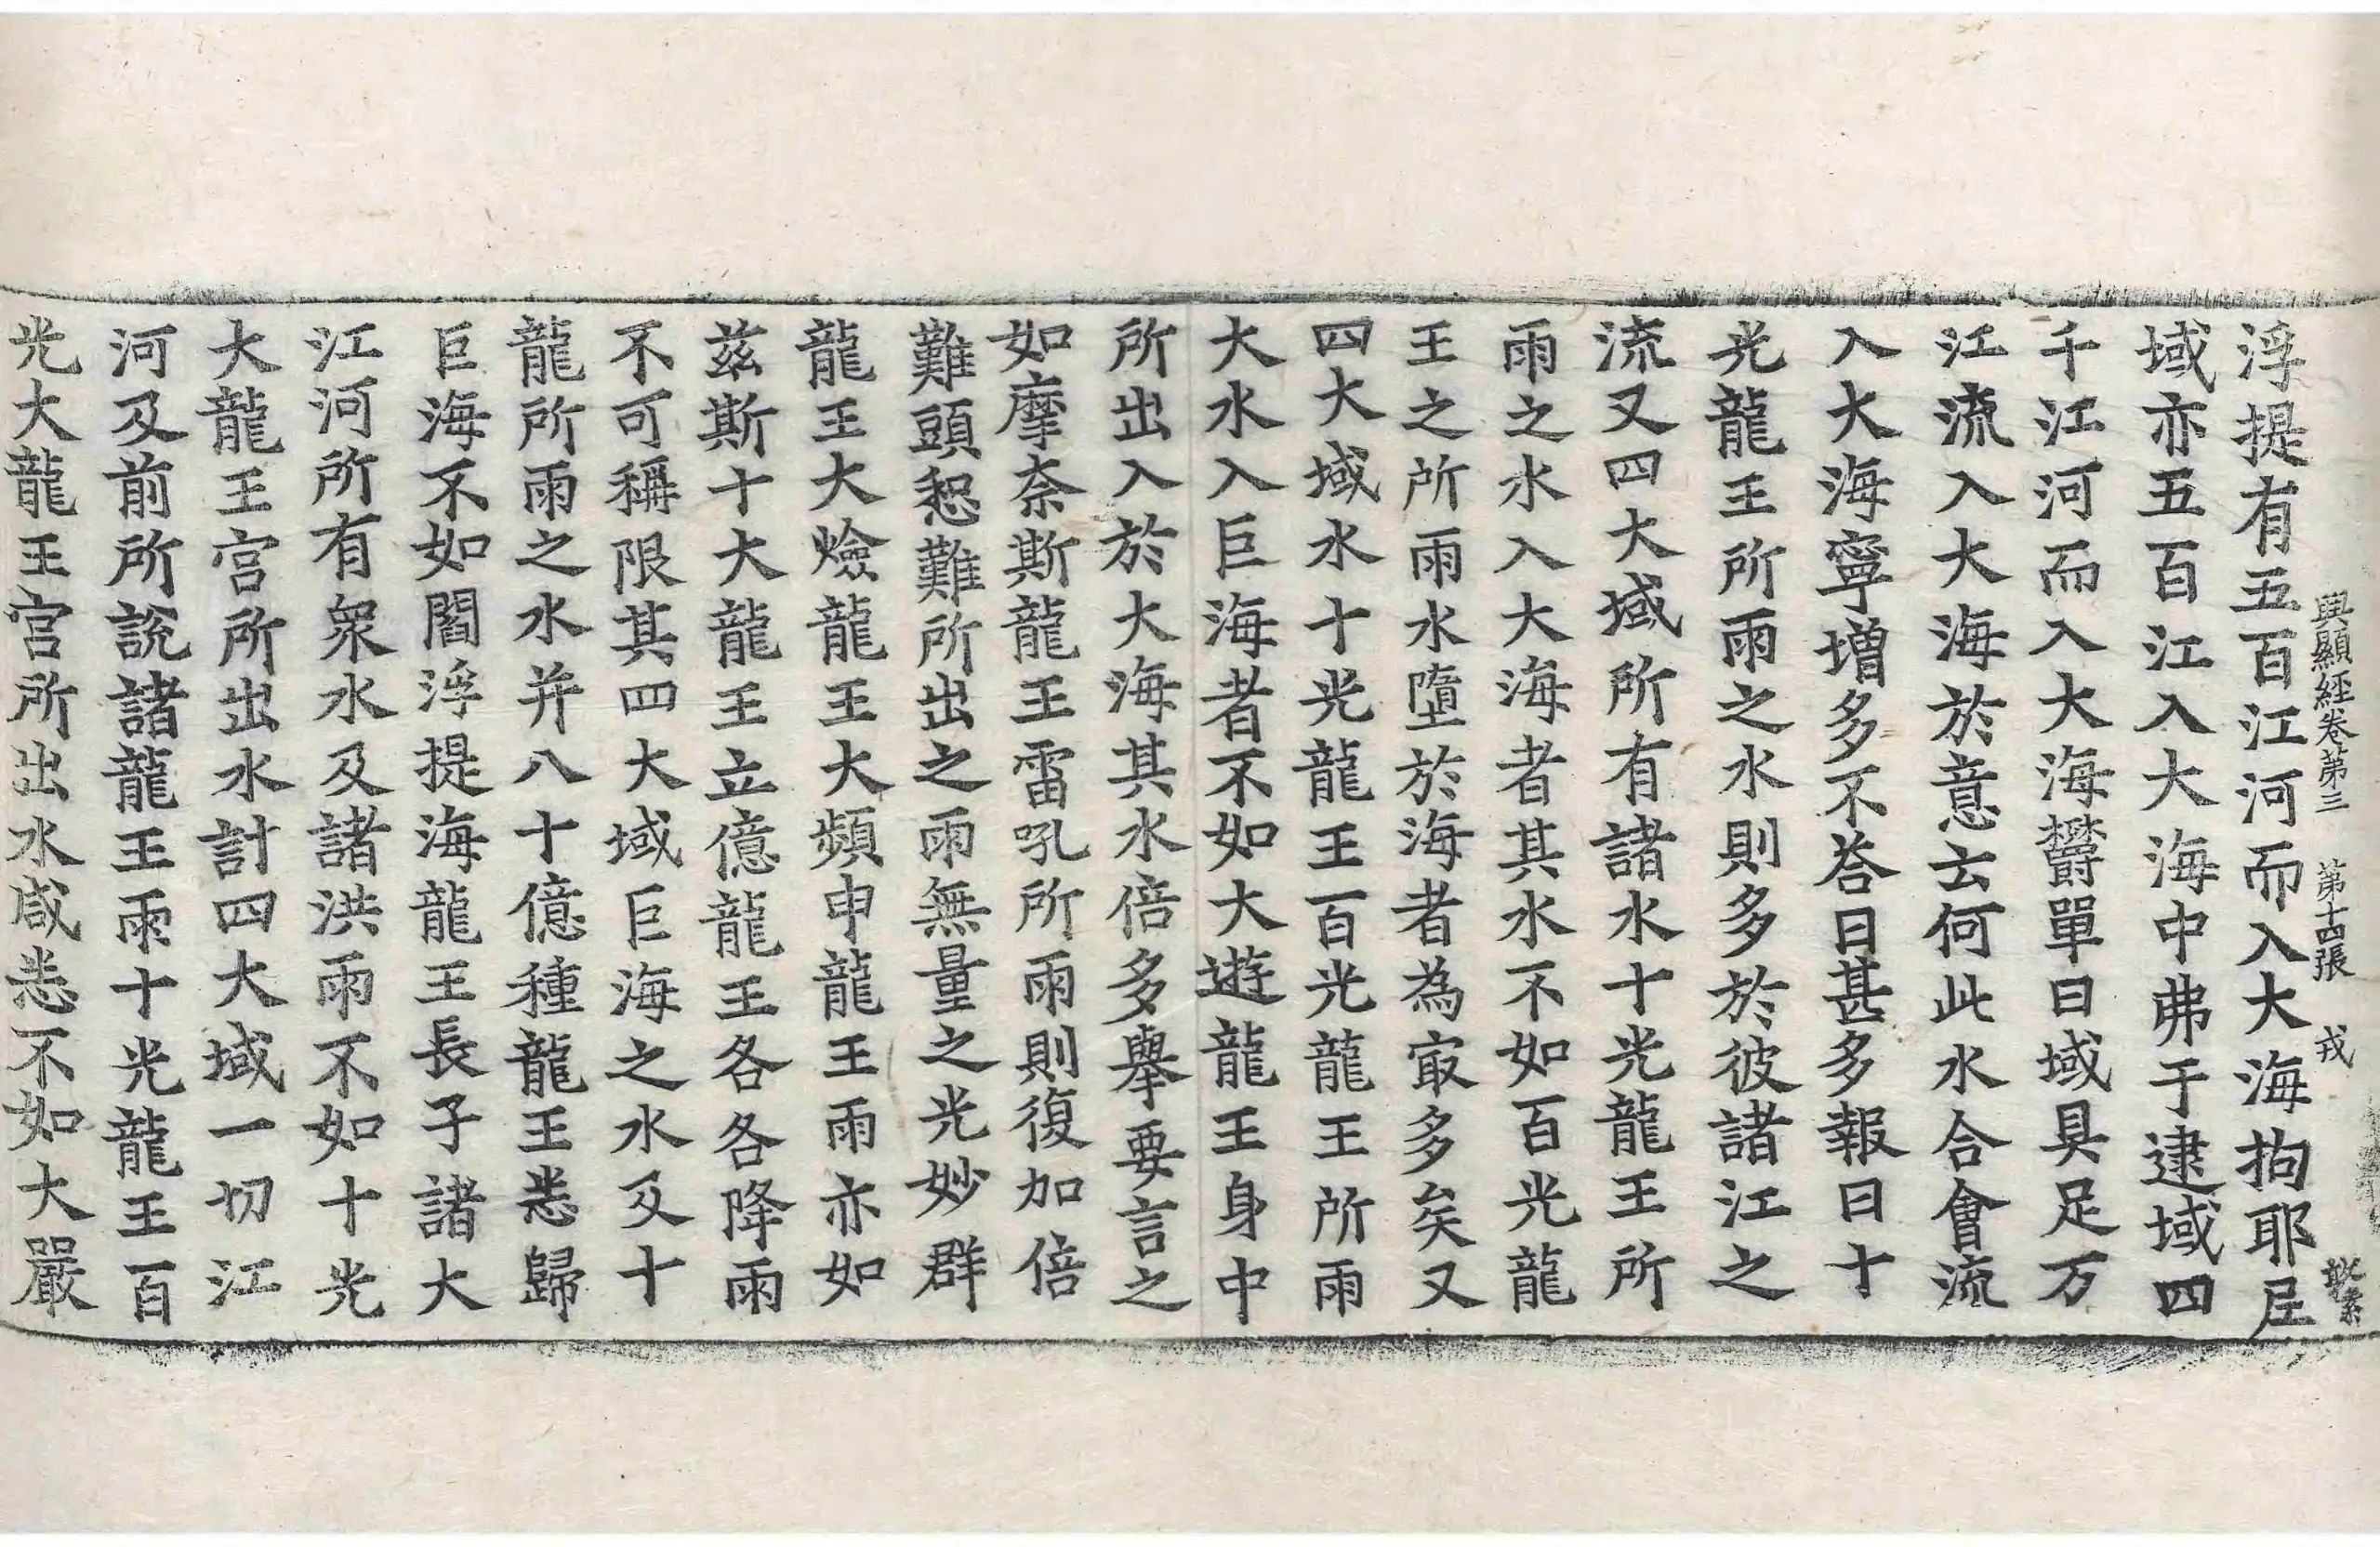 興顯經卷第三 第十四張 戎
浮提有五百江河而入大海拘耶尼
域亦五百江入大海中弗于逮域四
千江河而入大海欝單曰域具足万
江流入大海於意云何此水合會流
入大海寧增多不荅曰甚多報曰十
光龍王所雨之水則多於彼諸江之
流又四大域所有諸水十光龍王所
雨之水入大海者其水不如百光龍
王之所雨水墮於海者為冣多矣又
四大域水十光龍王百光龍王所雨
大水入巨海者不如大遊龍王身中
所出入於大海其水倍多舉要言之
如摩奈斯龍王雷吼所雨則復加倍
難頭惒難所出之雨無量之光妙群
龍王大燄龍王大頻申龍王雨亦如
茲斯十大龍王立億龍王各各降雨
不可稱限其四大域巨海之水及十
龍所雨之水并八十億種龍王悉歸
巨海不如閻浮提海龍王長子諸大
江河所有衆水及諸洪雨不如十光
大龍王宮所出水計四大域一切江
河及前所說諸龍王雨十光龍王百
光大龍王宮所出水咸悉不如大嚴